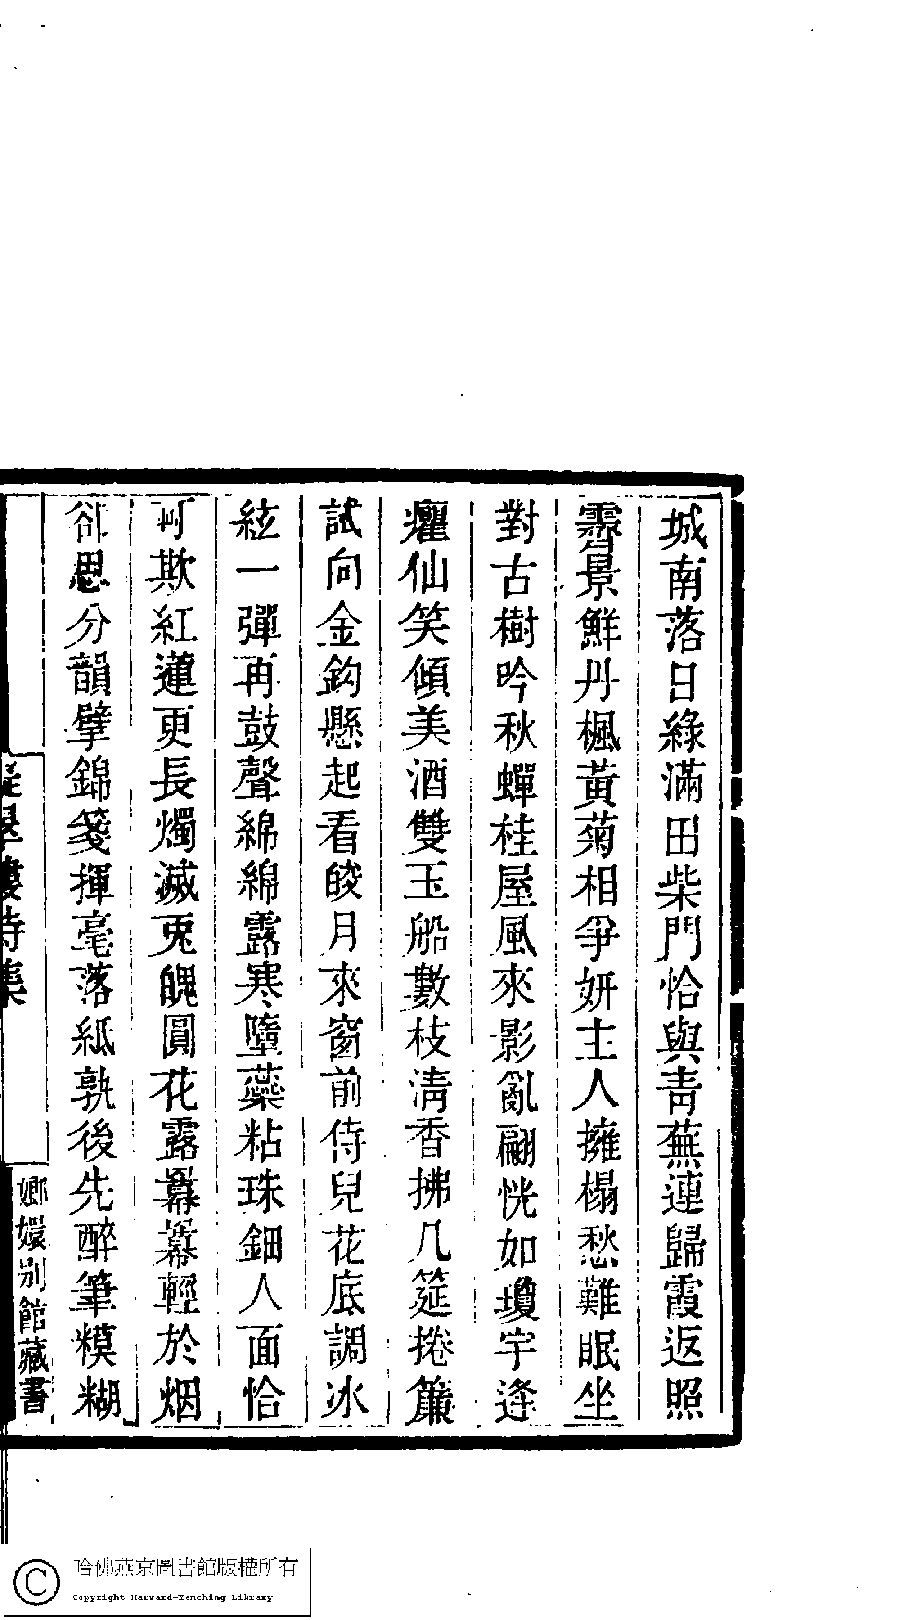 城南落日綠滿田柴門恰與靑蕪連歸霞返照
霽景鮮丹楓黃菊相爭妍主人擁榻愁難眠坐
對古樹吟秋蟬桂屋風來影亂翩恍如瓊宇逢
癯仙笑傾美酒雙玉船數枝淸香拂几筵捲簾
試向金鈎懸起看皎月來窗前侍兒花底調冰
絃一彈再鼓聲綿綿露寒墮蘂粘珠鈿人面恰
可欺紅蓮更長燭滅兎魄圓花露羃羃輕於烟
卻思分韻擘錦箋揮毫落紙孰後先醉筆糢糊
翠樓詩集
嫏嬛别館藏書
哈佛燕京圖書館版權所有
Copyright Harvard-Yenching Library